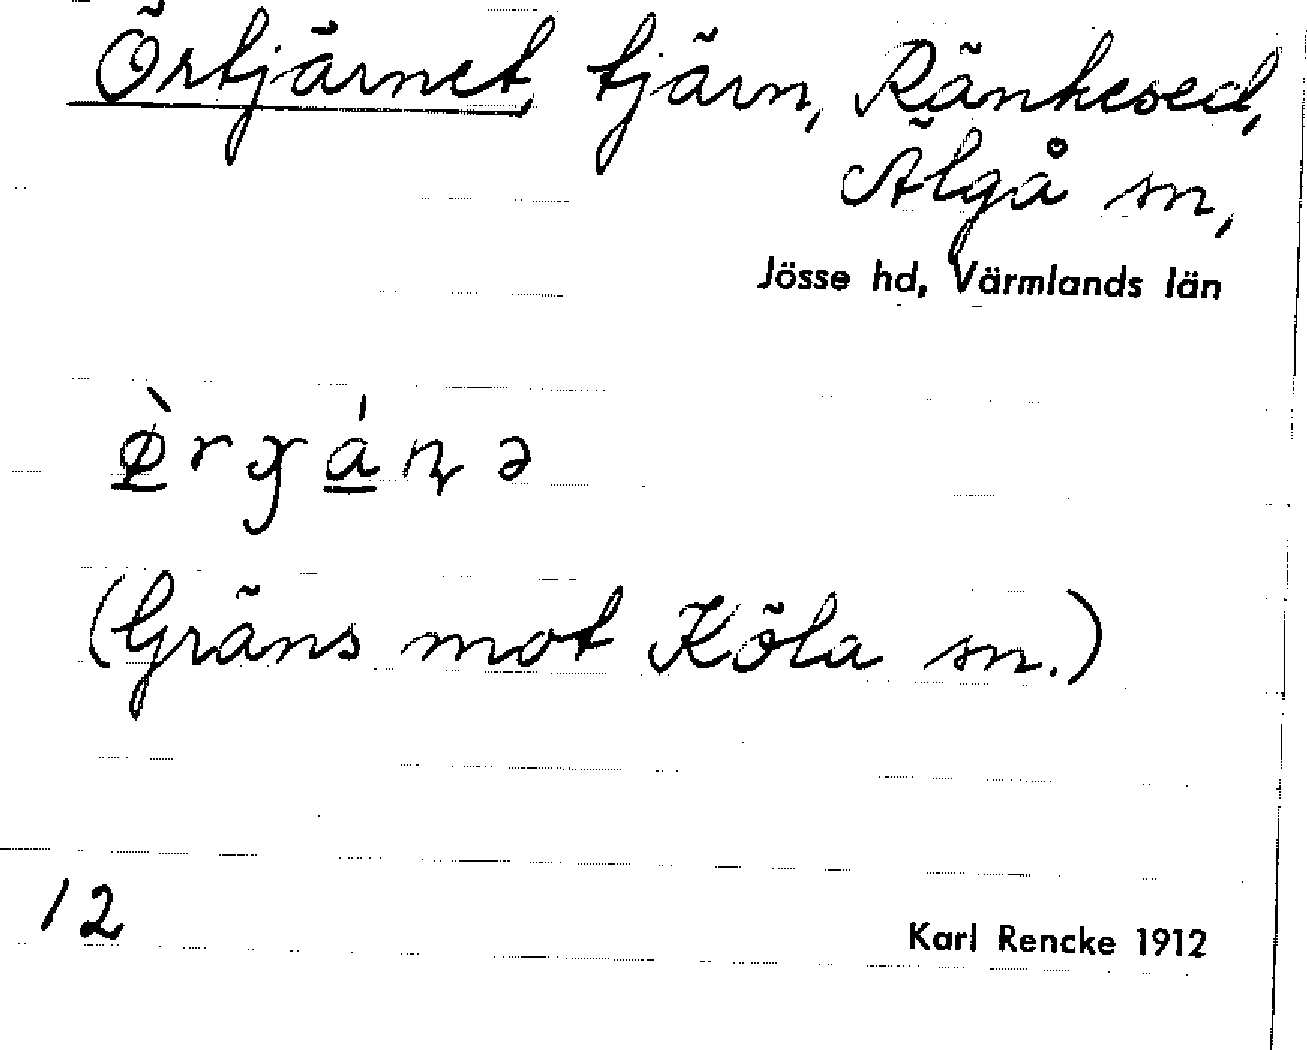 Örtjärnet, tjärn, Ränkesed,
Älgå sn,
Jösse hd, Värmlands län
ø̲̀rɣá̲ɳə
(Gräns mot Köla sn.)
12
Karl Rencke 1912